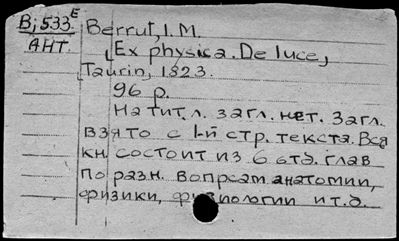 Bj533 E Berrut, I.M.
АНТ. [Ex physica. De luce,]
Taurin, 1823.
96 p.
На тит. л. загл. нет. Загл.
взято с 1-й стр. текста. Вся
кн. состоит из 6 отд. глав
по разн. вопросам анатомии,
физики, физиологии и т.д.